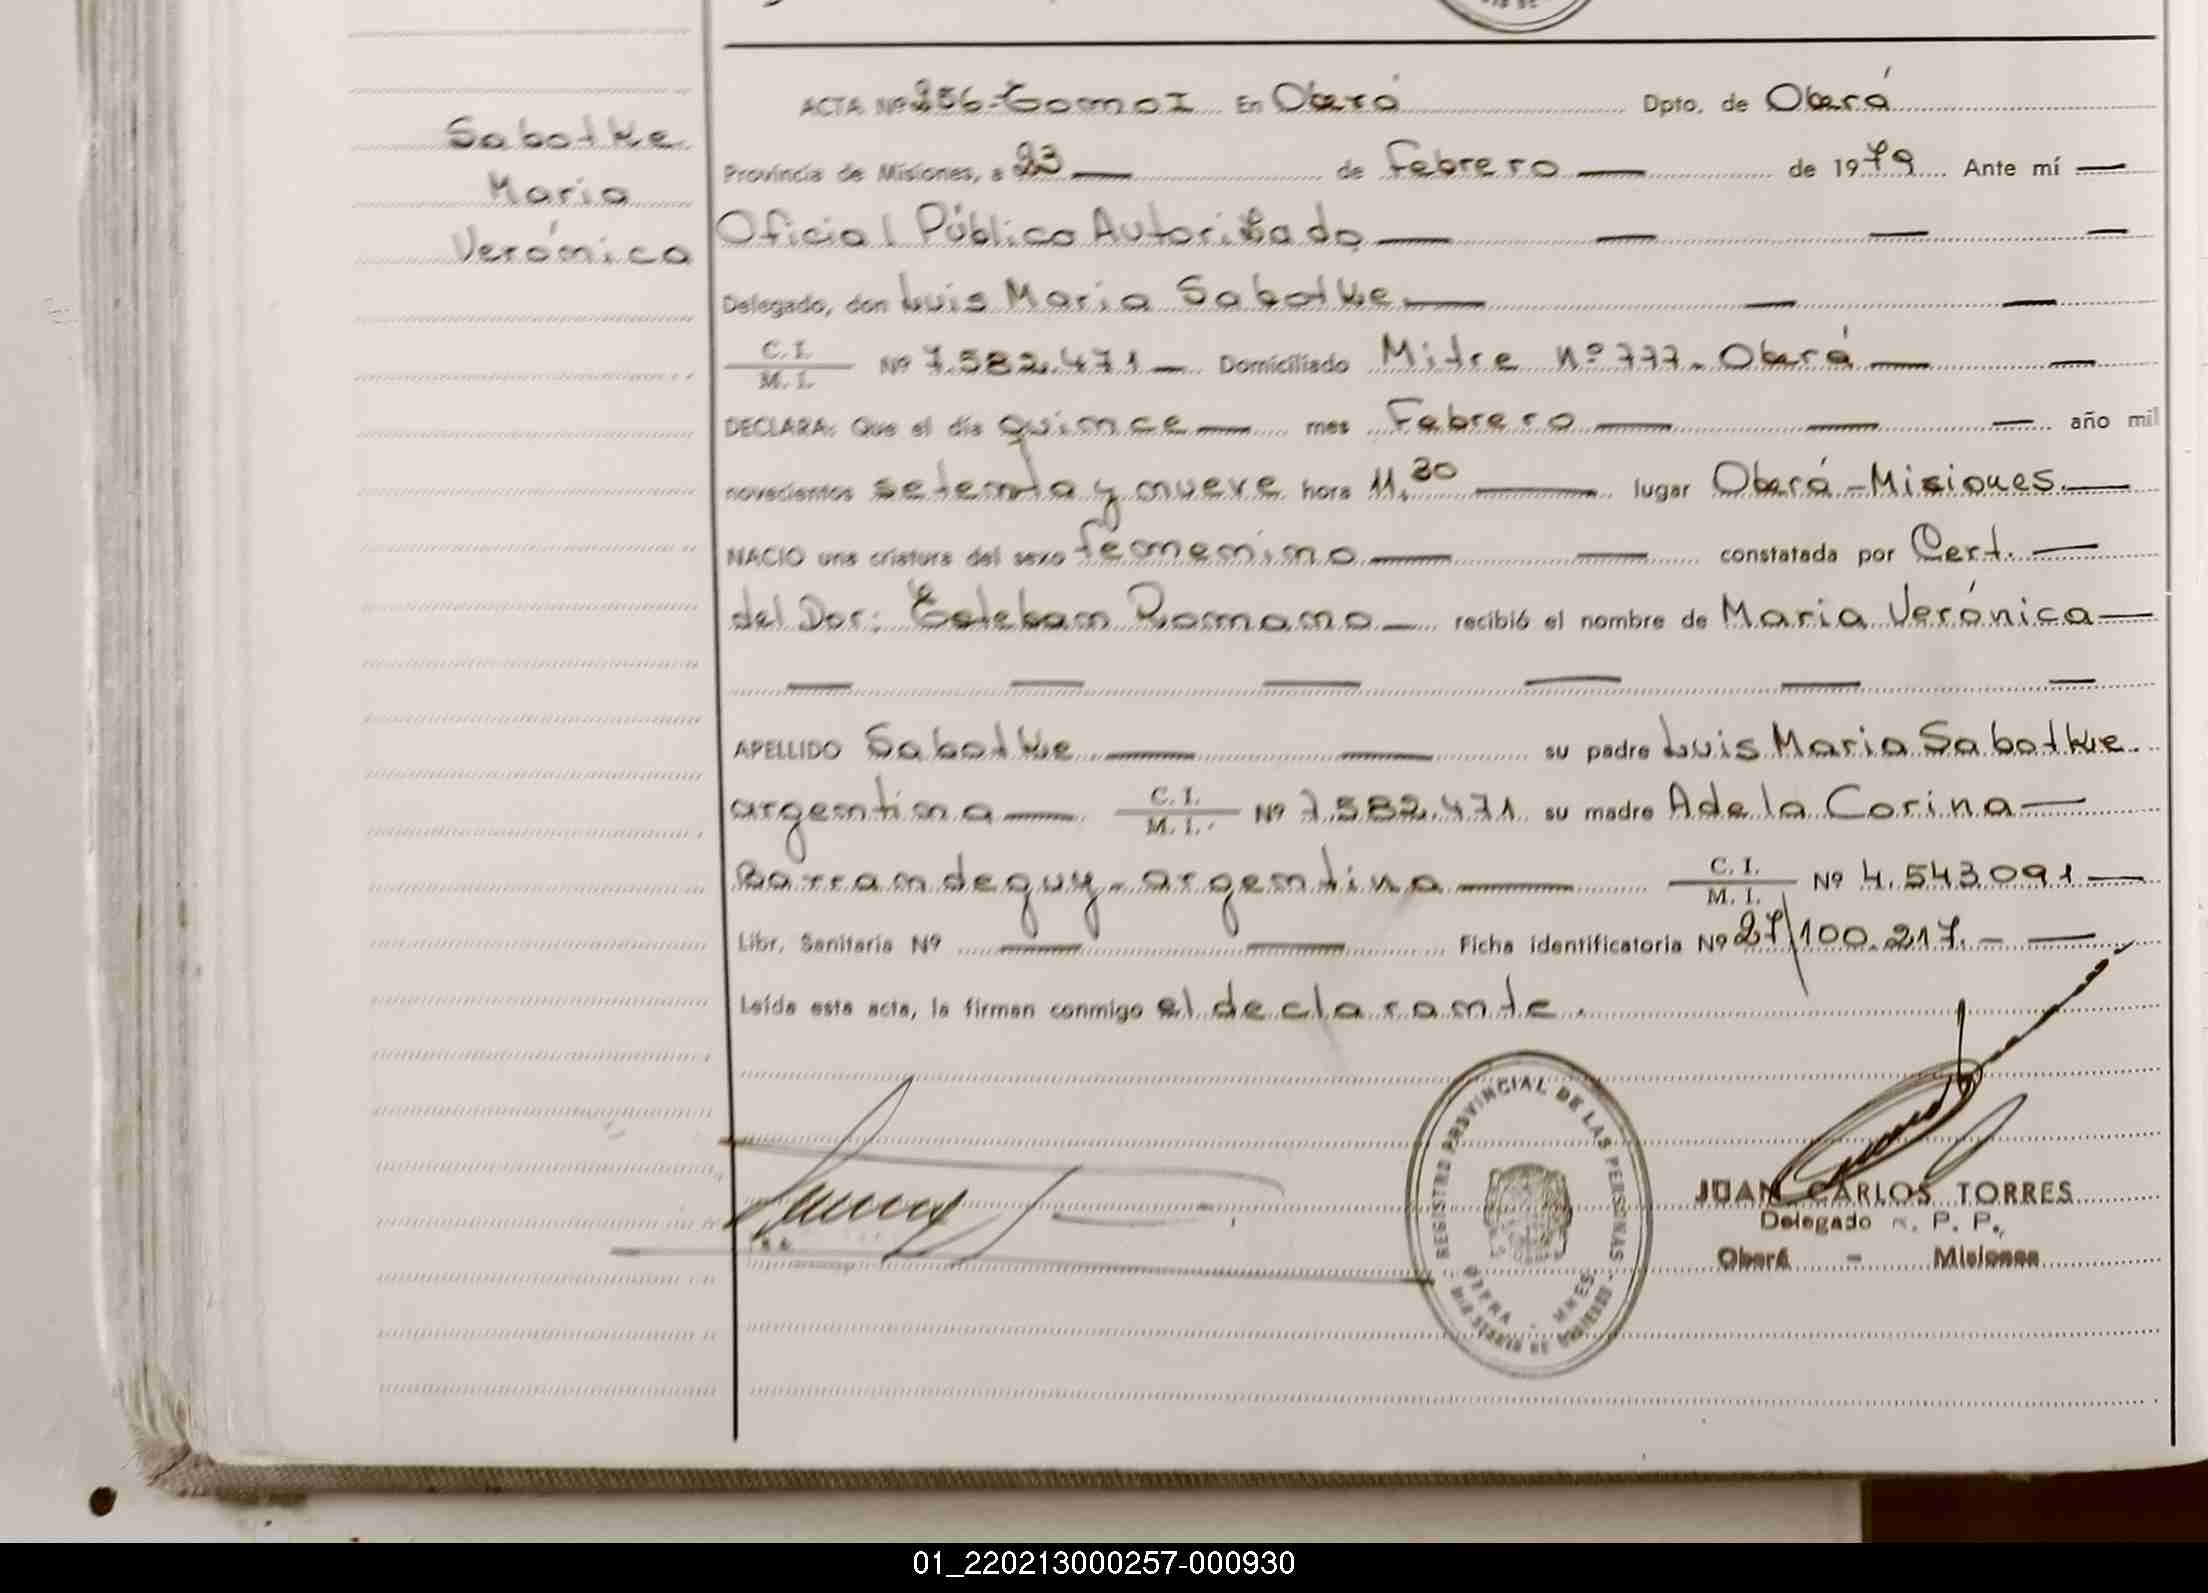 Sabotke
Maria
Verónica
ACTA Nº 256-Tomo I En Oberá Dpto. de Oberá
Provincia de Misiones, a 23 — de Febrero — de 1979 Ante mí —
Oficial Público Autorizado — — — —
Delegado, don Luis Maria Sabotke — — —
C. I.
M. I. Nº 7.582.471 — Domiciliado Mitre nº 777. Oberá — —
DECLARA: Que el día quince — mes Febrero — — — año mil
novecientos setenta y nueve hora 11.30 — lugar Oberá - Misiones. —
NACIO una criatura del sexo femenino — — constatada por Cert. —
del Dor: Esteban Romano — recibió el nombre de Maria Verónica —
— — — — — —
APELLIDO Sabotke — — su padre Luis Maria Sabotke.
argentina — C. I.
M. I. Nº 7.582.471 su madre Adela Corina —
Barrandeguy - argentina — C. I.
M. I. Nº 4.543.091 —
Libr. Sanitaria Nº — — Ficha identificatoria Nº 27/100.217. — —
Leída esta acta, la firman conmigo el declarante.
REGISTRO PROVINCIAL DE LAS PERSONAS
JUAN CARLOS TORRES
Delegado R. P. P.
Oberá - Misiones
01_220213000257-000930